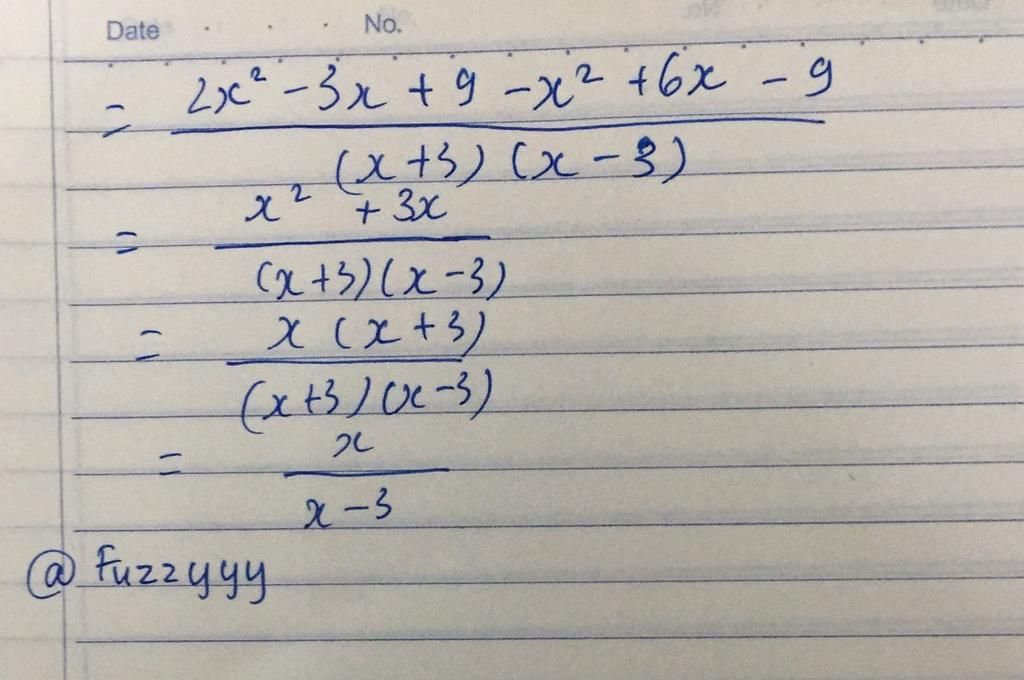 Date No.
= 2x² - 3x + 9 - x² + 6x - 9
(x + 3) (x - 3)
= x² + 3x
(x + 3) (x - 3)
= x (x + 3)
(x + 3) (x - 3)
= x
x - 3
@ Fuzzyyy